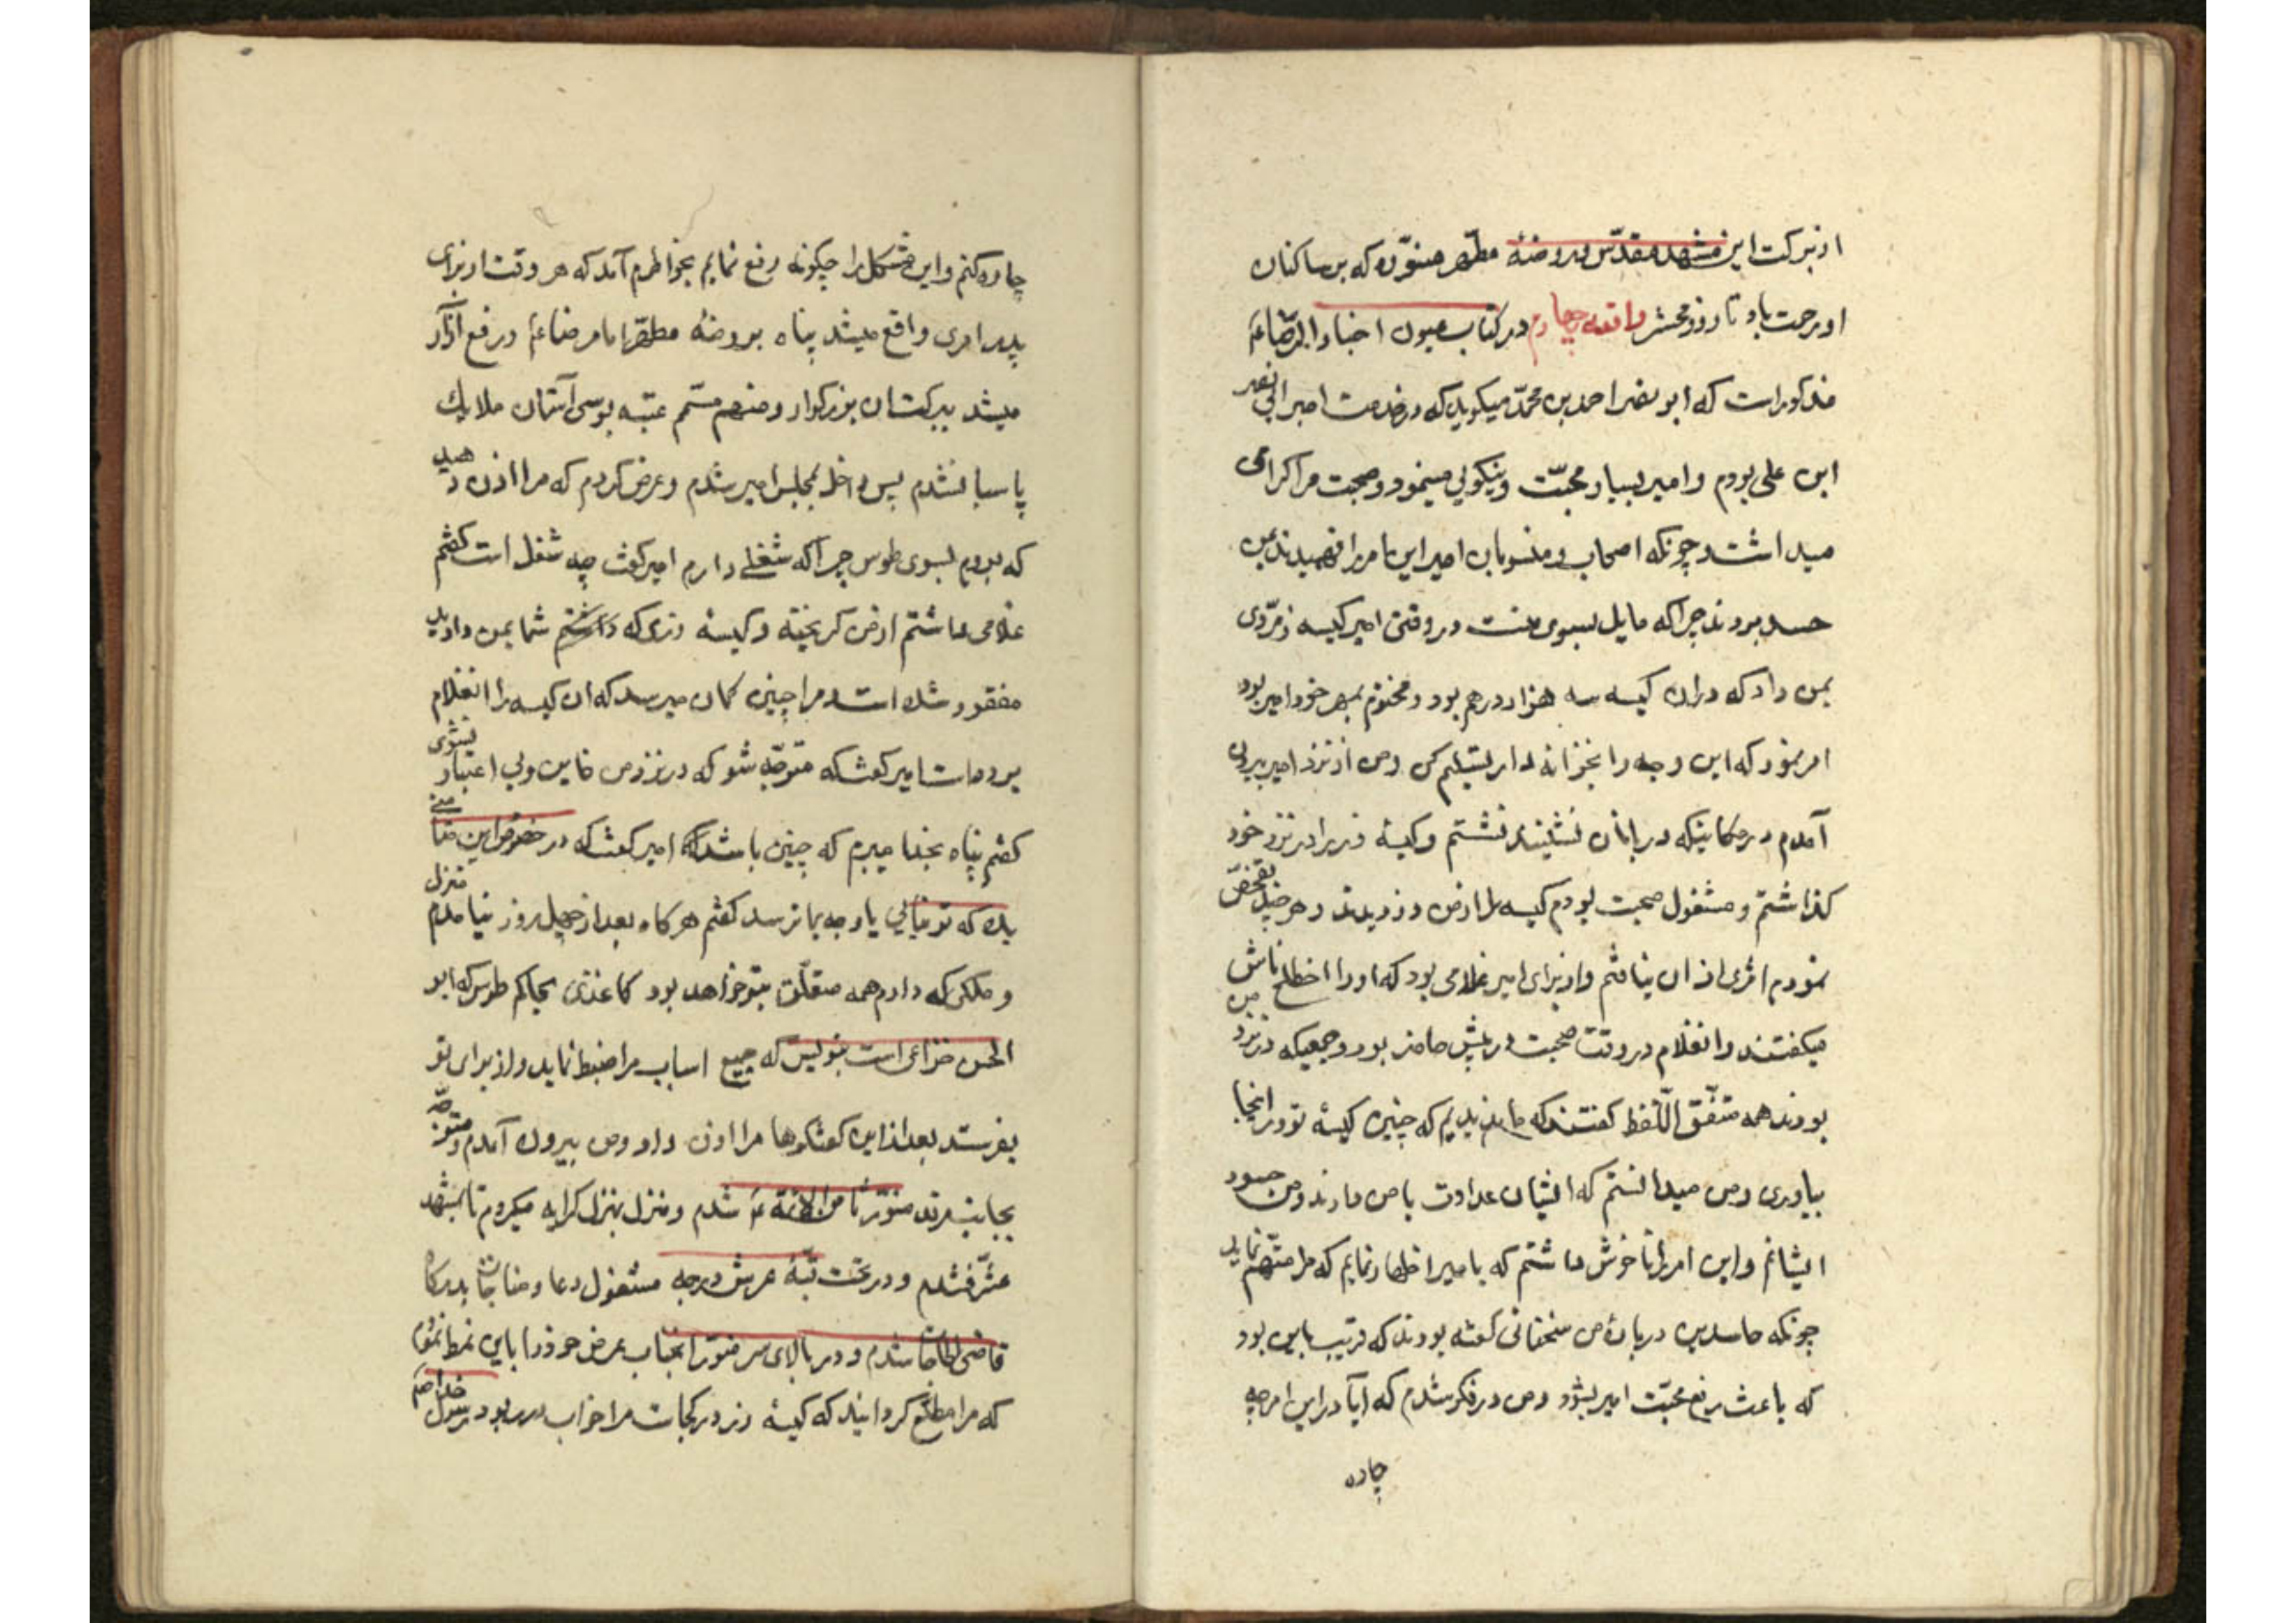 از برکت این مشهد مقدّس و روضهٔ مطهّر منوّره که بر ساکنان
او رحمت باد تا روز محشر واقعه چهارم در کتاب عیون اخبار الرّضاء
مذکور است که ابو نصر احمد بن محمّد میکوید که در خدمت امیر ابی نصر
ابن علی بودم و امیر بسیار محبّت و نیکویی مینمود و صحبت مرا کرامی
میداشت و چونکه اصحاب و منسوبان امیر این امر را فهمیدند بمن
حسد بردند چرا که مایل بسوی منست در وقتی امیر کیسه زمرّدی
بمن داد که در ان کیسه سه هزار درهم بود و مختوم بمهر خود امیر بود
امر نمود که این وجه را بخزانه دار تسلیم کن و من از نزد امیر بیرون
آمدم در مکانیکه دربانان نشینند نشستم و کیسهٔ زر را در نزد خود
کذاشتم و مشغول صحبت بودم کیسه را از من دزدیدند و هر چند تفحّص
نمودم اثری از ان نیافتم و از برای امیر غلامی بود که او را اخطلخ تاش
میکفتند و انغلام در وقت صحبت در پیش من حاضر بود و جمعیکه در نزد
بودند همه متفّق اللّفظ کفتند که ما ندیدیم که چنین کیسهٔ تو در اینجا
بیاوری و من میدانستم که ایشان عداوت با من دارند و من حسود
ایشانم و این امر را ناخوش داشتم که بامیر اظهار نمایم که مرا متّهم نماید
چونکه حاسدین در بارهٔ من سخنانی کفته بودند که قریب باین بود
که باعث رفع محبّت امیر بشود و من در فکر شدم که آیا در این امر چه
چاره
چاره کنم و این مشکل را چکونه رفع نمایم بخواطرم آمد که هر وقت از برای
پدر امری واقع میشد پناه بروضهٔ مطهّر امام رضاء و رفع آزار
میشد ببرکت ان بزرکوار و منهم مستم عتبه بوسی آستان ملایک
پاسبانشدم پس داخل مجلس امیر شدم و عرض کردم که مرا اذن دهید
که بروم بسوی طوس چرا که شغلی دارم امیر کفت چه شغل است کفتم
غلامی داشتم از من کریخته و کیسهٔ زری که داشتم شما بمن دادید
مفقود شده است مرا چنین کمان میرسد که ان کیسه را انغلام
برده است امیر کفت که متوجّه شو که در نزد من خاین و بی اعتبار نشوی
کفتم پناه بخدا میبرم که چنین باشد امیر کفت که در خصوص این ضامنی
بده که تو نیایی یا وجه بما نرسد کفتم هرکاه بعد از چهل روز نیامدم منزل
و ملکی که دارم همه متعلّق بتو خواهد بود کاغذی بحاکم طوس که ابو
الحسن خزاعی است بنویس که جمیع اسباب مرا ضبط نماید و از برای تو
بفرستد بعد از این کفتکوها مرا اذن داد و من بیرون آمدم و متوجّه
بجانب مرقد منوّر ثامن الائمّهٔ ع شدم و منزل بمنزل کرایه میکردم تا بمشهد
مشرّفشدم و در تحت قبّهٔ عرش درجه مشغول دعا و مناجات بدرکاه
قاضی الحاجات شدم و در بالای سر منوّر انجناب عرض خود را باین نمط نمودم
که مرا مطّلع کردانید که کیسهٔ زر در کجاست مرا خواب در ربود رسول خدا صم